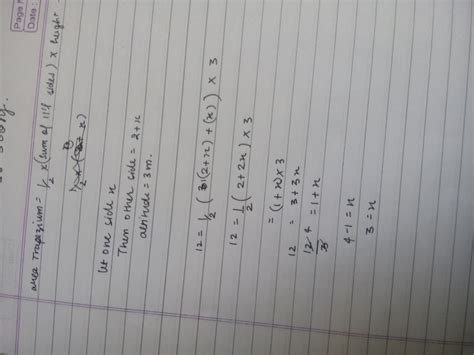 Page N
Date:
area trapezium = 1/2 x (sum of 11'l sides) x height
1/2 x (2+ x)
let one side x
Then other side = 2+x
altitude = 3 m.
12 = 1/2 ((2+x) + (x)) x 3
12 = 1/2 (2+2x) x 3
= (1+x) x 3
12 = 3+3x
12 4/3 = 1+x
4-1 = x
3 = x